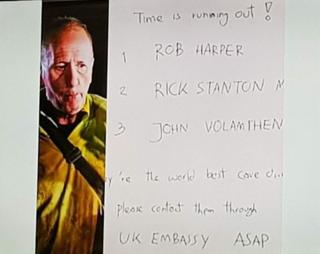 Time is running out !
1 ROB HARPER
2 RICK STANTON M
3 JOHN VOLANTHEN
're the world best cave d...
please contact them through
UK EMBASSY ASAP